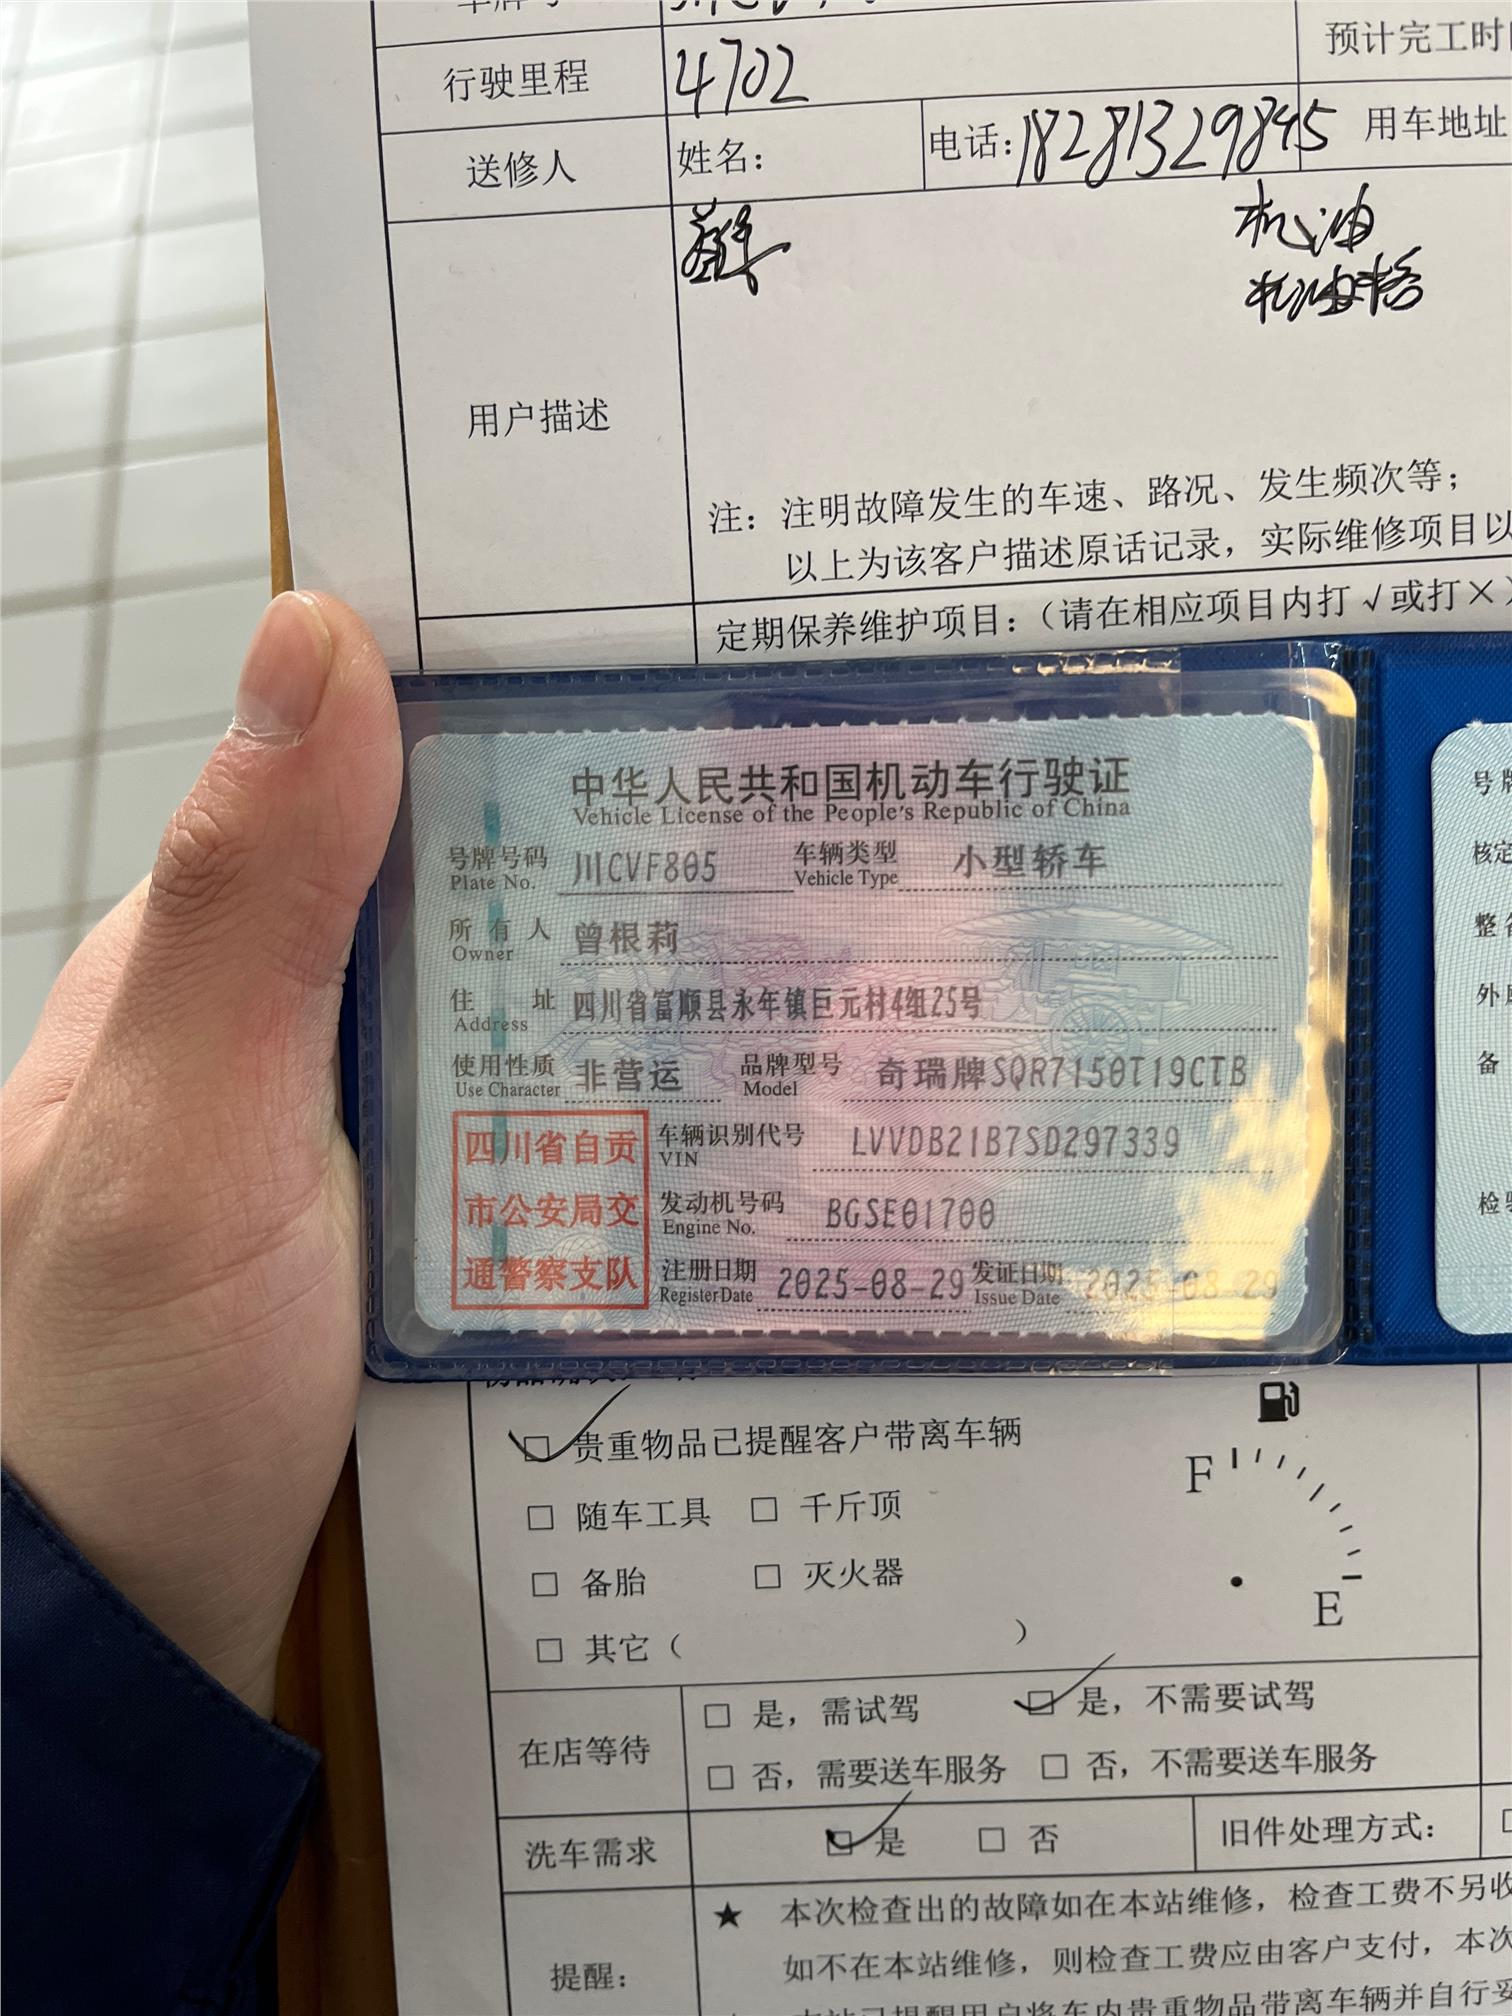 行驶里程 4702 预计完工时
送修人 姓名： 电话：18281329845 用车地址
机油
机油格
用户描述
注：注明故障发生的车速、路况、发生频次等；
以上为该客户描述原话记录，实际维修项目以
定期保养维护项目：（请在相应项目内打√或打×）
中华人民共和国机动车行驶证
Vehicle License of the People's Republic of China
号牌号码 川CVF805 车辆类型 小型轿车
Plate No. Vehicle Type
所有人 曾根莉
Owner
住址 四川省富顺县永年镇巨元村4组25号
Address
使用性质 非营运 品牌型号 奇瑞牌SQR7150T19CTB
Use Character Model
四川省自贡
市公安局交
通警察支队
车辆识别代号 LVVDB21B7SD297339
VIN
发动机号码 BGSE01700
Engine No.
注册日期 2025-08-29 发证日期 2025-08-29
Register Date Issue Date
号牌
核定
整备
外
备
检验
☑ 贵重物品已提醒客户带离车辆
□ 随车工具 □ 千斤顶
□ 备胎 □ 灭火器
□ 其它（ ）
F
E
在店等待
□ 是，需试驾 ☑ 是，不需要试驾
□ 否，需要送车服务 □ 否，不需要送车服务
洗车需求 ☑ 是 □ 否 旧件处理方式：
提醒：
★ 本次检查出的故障如在本站维修，检查工费不另收
如不在本站维修，则检查工费应由客户支付，本次
本站已提醒用户将车内贵重物品带离车辆并自行妥